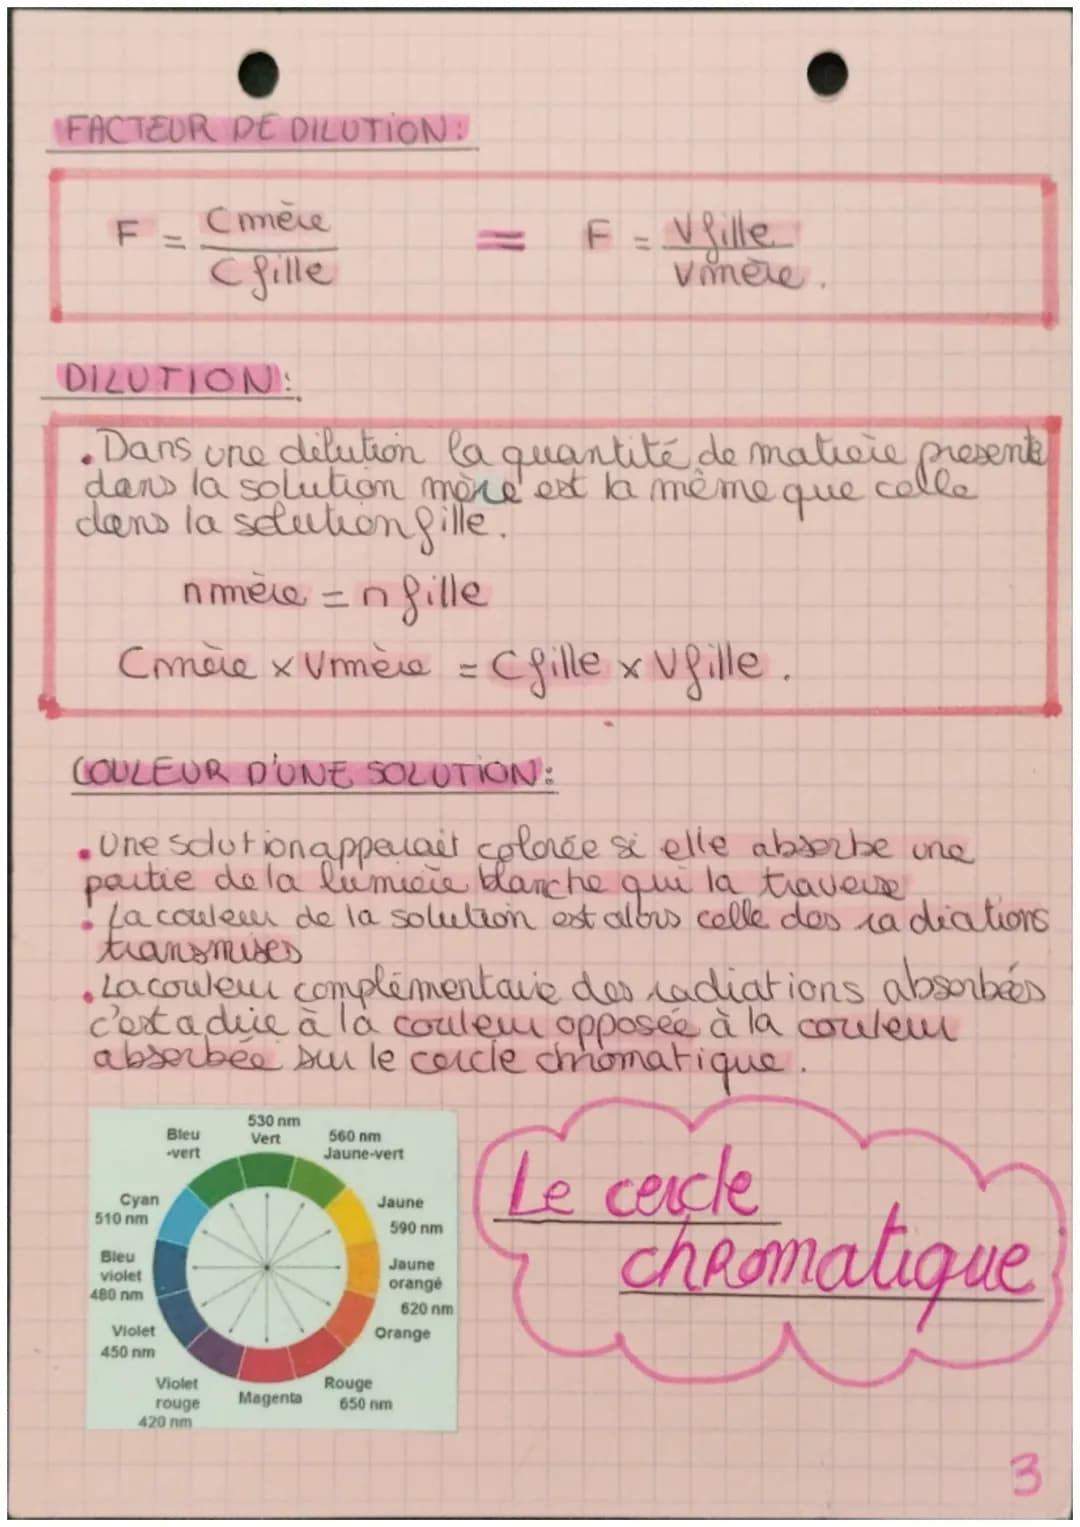 FACTEUR DE DILUTION:
F = Cmère / Cfille = F = Vfille / Vmère.
DILUTION:
. Dans une dilution la quantité de matière presente
dans la solution mère est la même que celle
dans la solution fille.
n mère = n fille
Cmère x Vmère = Cfille x Vfille.
COULEUR D'UNE SOLUTION:
. Une solution apparait colorée si elle absorbe une
partie de la lumière blanche qui la traverse
. La couleur de la solution est alors celle des radiations
transmises
. La couleur complémentaire des radiations absorbées
c'est a dire à la couleur opposée à la couleur
absorbée sur le cercle chromatique.
530 nm
Vert
Bleu
-vert
560 nm
Jaune-vert
Cyan
510 nm
Jaune
590 nm
Bleu
violet
480 nm
Jaune
orangé
620 nm
Violet
450 nm
Orange
Violet
rouge
420 nm
Magenta
Rouge
650 nm
Le cercle
chromatique
3